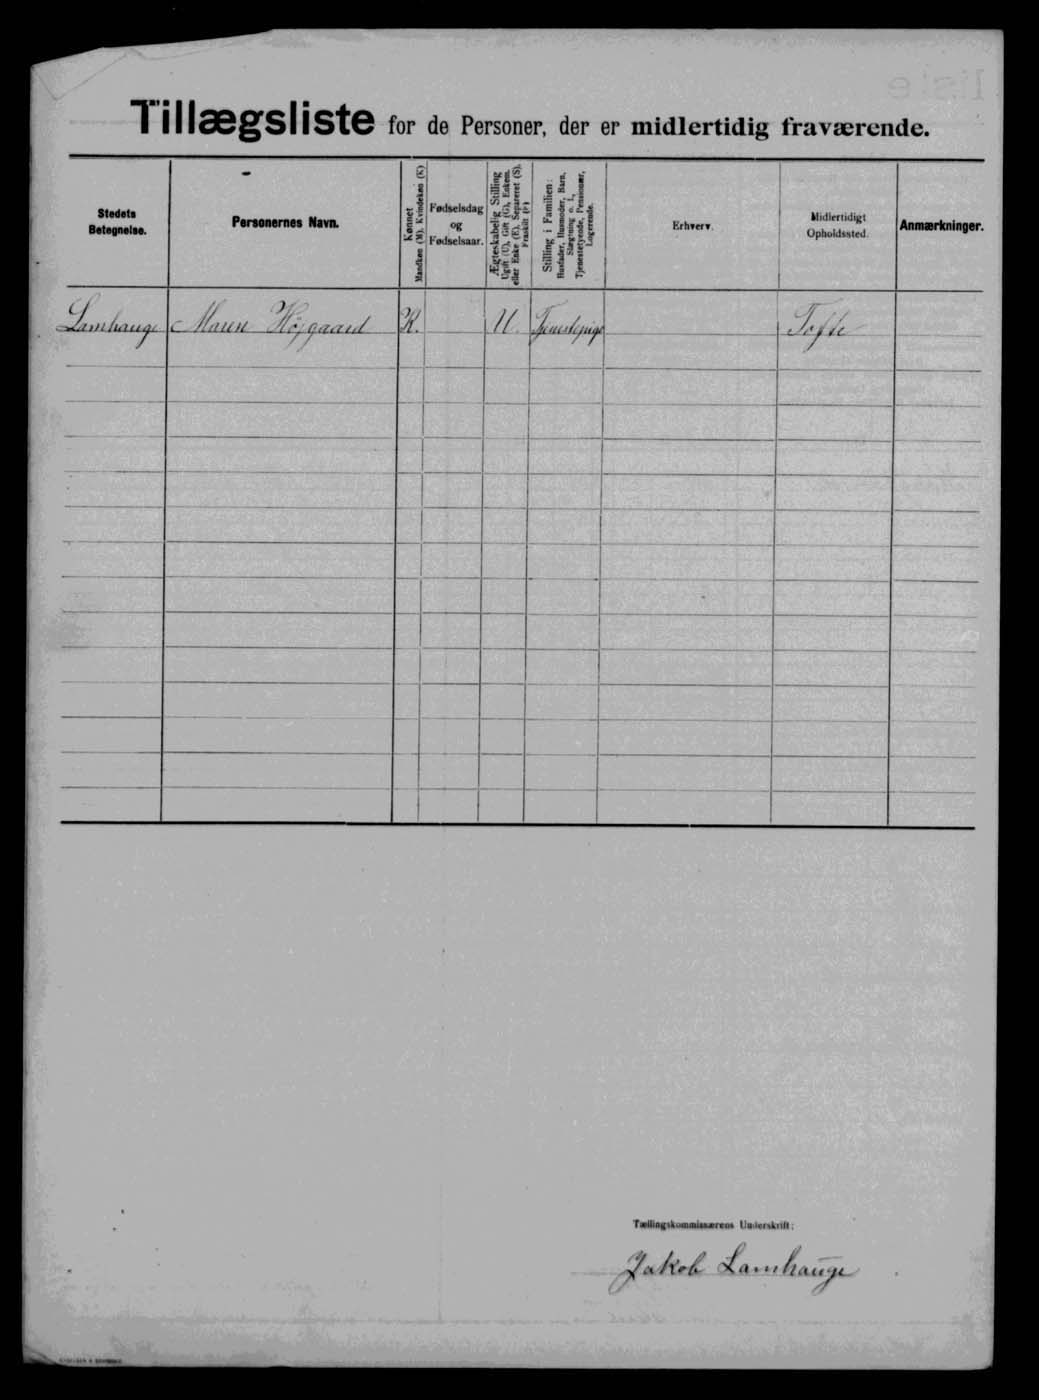 Tillægsliste for de Personer, der er midlertidig fraværende.
Stedets Betegnelse.
Personernes Navn.
Kønnet
Mandkøn (M). Kvindekøn (K)
Fødselsdag
og
Fødselsaar.
Ægteskabelig Stilling
Ugift (U), Gift (G), Enkem.
eller Enke (E), Separeret (S).
Fraskilt (F)
Stilling i Familien:
Husfader, Husmoder, Barn,
Slægtning o. l.,
Tjenestetyende, Pensionær,
Logerende.
Erhverv.
Midlertidigt
Opholdssted.
Anmærkninger.
Lamhauge Maren Højgaard K. U. Tjenestepige Tofte
Tællingskommissærens Underskrift:
Jakob Lamhauge